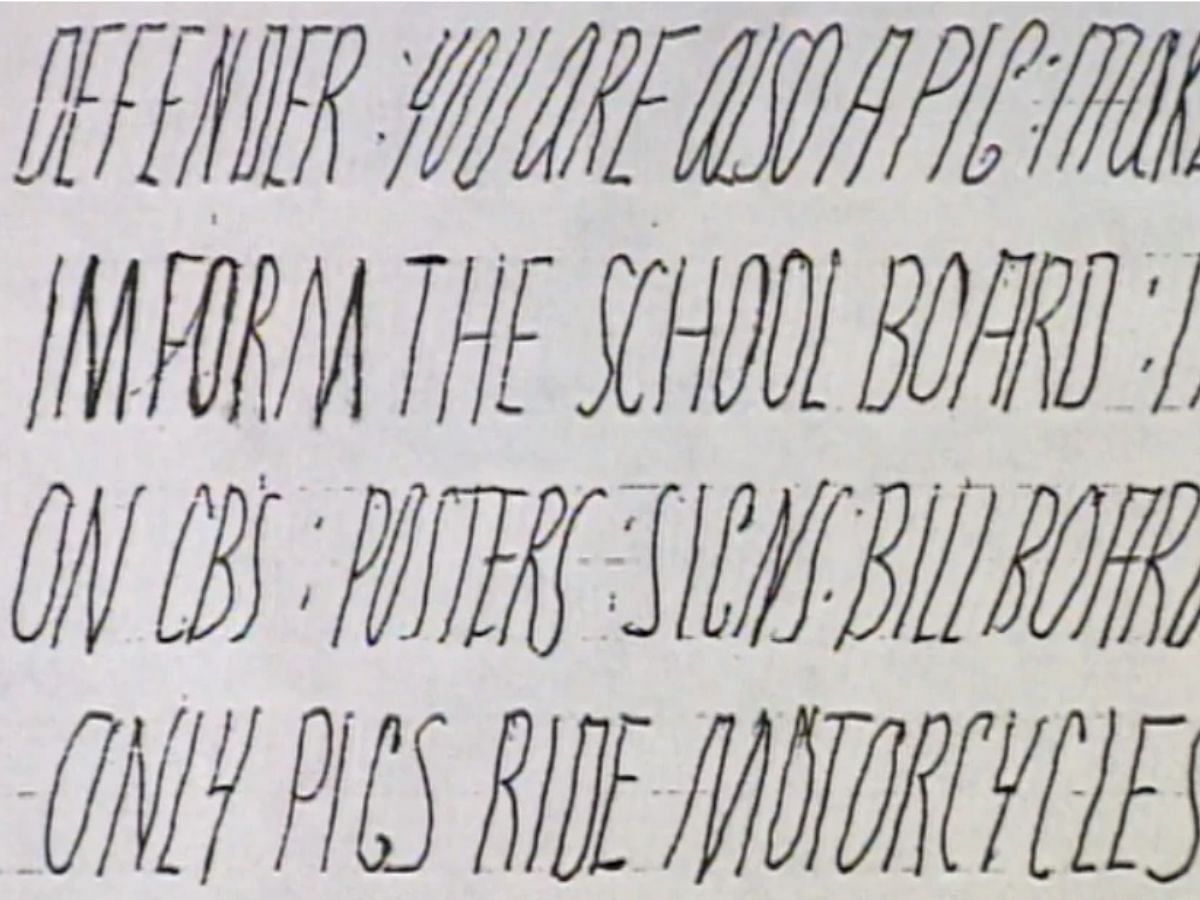 DEFENDER : YOU ARE ALSO A PIG : MARK
IMFORM THE SCHOOL BOARD :
ON CBS : POSTERS : SIGNS : BILLBOARD
ONLY PIGS RIDE MOTORCYCLES